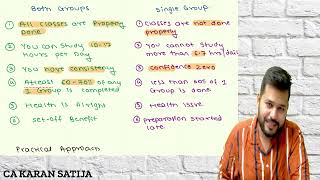 Both Groups
Single Group
① All classes are Properly Done
② You can study 10-12 hours per Day
③ You have consistency
④ Atleast 60-70% of any 1 Group is completed
⑤ Health is Alright
⑥ set-off Benefit
Practical Approach
① classes are not done properly
② You cannot study more than 6-7 hrs/day
③ confidence zero
④ less than 50% of 1 Group is done.
⑤ Health issue
⑥ preparation started late.
CA KARAN SATIJA